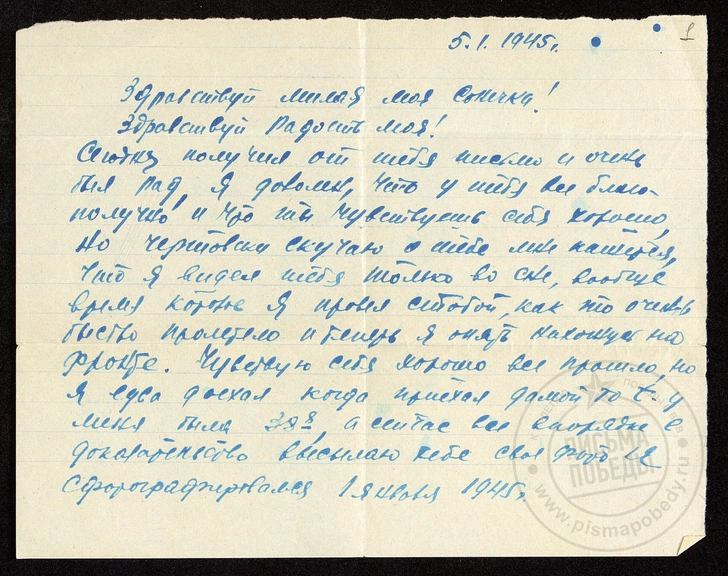 1
5.1.1945г.
Здравствуй милая моя Сонечка!
Здравствуй Радость моя!
Сегодня получил от тебя письмо и очень
был рад, я доволен, что у тебя все благо-
получно, и что ты чувствуешь себя хорошо,
но чертовски скучаю о тебе мне кажется,
что я видел тебя только во сне, вообще
время которые я провел с тобой, как то очень
быстро пролетело и теперь я опять нахожусь на
фронте. Чувствую себя хорошо все прошло, но
я едва доехал когда приехал дамой то t у
меня была а сейчас все впорядке в
доказательство высылаю тебе свое фото я
сфотографировался 1 января 1945г.
ПИСЬМА
ПОБЕДЫ
www.pismapobedy.ru